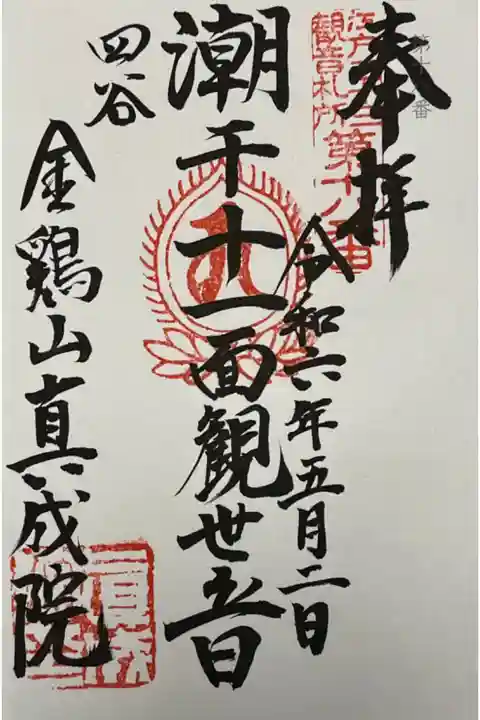 奉拝
第十八番
江戸三十三
観音札所
第十八番
令和六年五月二日
潮干十一面観世音
四谷
金鶏山真成院